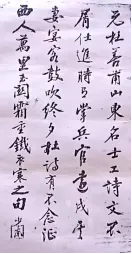 元杜善甫山東名士工詩文不
屑仕進時與掌兵官遠戍子
妻宴客鼓吹終夕杜詩有不念征
西人萬里玉關霜重鐵衣寒之句